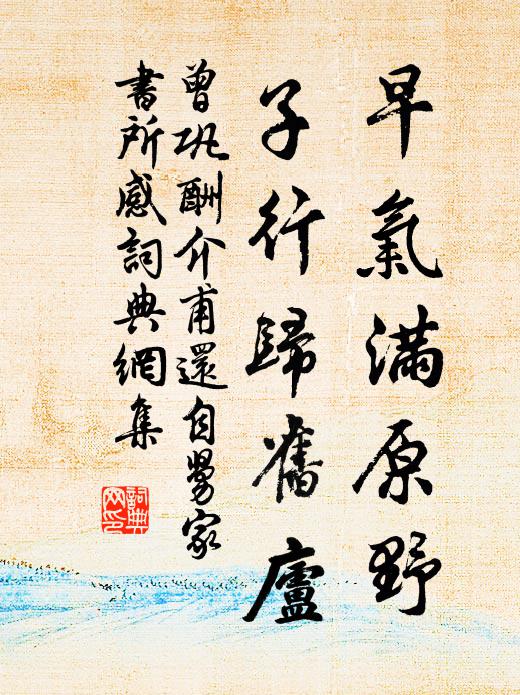 早氣滿原野
子行歸舊廬
曾巩酬介甫還自舅家
書所感詞典網集
詞典
网印